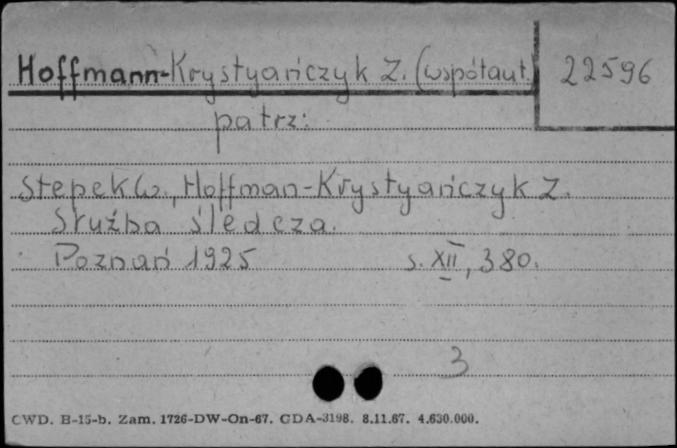 Hoffmann-Krystyańczyk Z. (współaut.)
22596
patrz:
Stepek W., Hoffman-Krystyańczyk Z.
Służba śledcza.
Poznań 1925 s. XII, 380.
3
CWD. B-15-b. Zam. 1726-DW-On-67. CDA-3198. 8.11.67. 4.630.000.